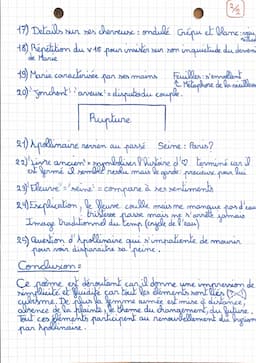 2/2
17) Details sur ses cheveux : ondulé Crépu et blanc
18) Répétition du v.10 pour insister sur son inquietude du devenir
de Marie
19) Marie caractérisée par ses mains Feuilles : s'envolent
20) "Jonchent" "aveux" = dispute du couple. Métaphore de la
Rupture
21) Apollinaire revien au passé Seine : Paris?
22) "Livre ancien" = symboliser l'histoire d'♡ terminé car il
est fermé il semble mais le garde précieux pour lui
23) "Fleuve" = "seine" = compare à ses sentiments
24) Explication, le fleuve coulle mais ne manque pas d'eau
tristesse passe mais ne s'arrête jamais
Image traditionnel du temp (cycle de l'eau)
25) Question d'Apollinaire qui s'impatiente de mourir
pour voir disparaitre sa peine.
Conclusion :
Ce poème est déroutant car il donne une impression de
simplicité et fluidité car tout les éléments sont liés
cubisme. De plus la femme aimée est mise à distance,
absence de la plainte, le theme du changement, du future.
Tout ces éléments participent au renouvellement du lyrisme
par Apollinaire.